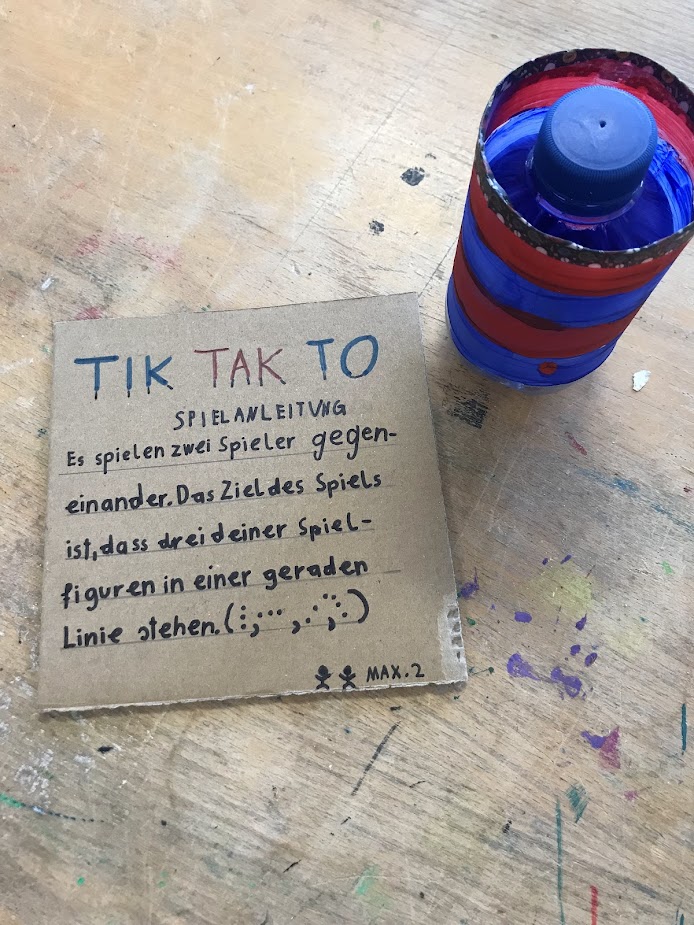 TIK TAK TO
SPIELANLEITUNG
Es spielen zwei Spieler gegen-
einander. Das Ziel des Spiels
ist, dass drei deiner Spiel-
figuren in einer geraden
Linie stehen. (⋮, ···, ⋰, ⋱)
MAX. 2